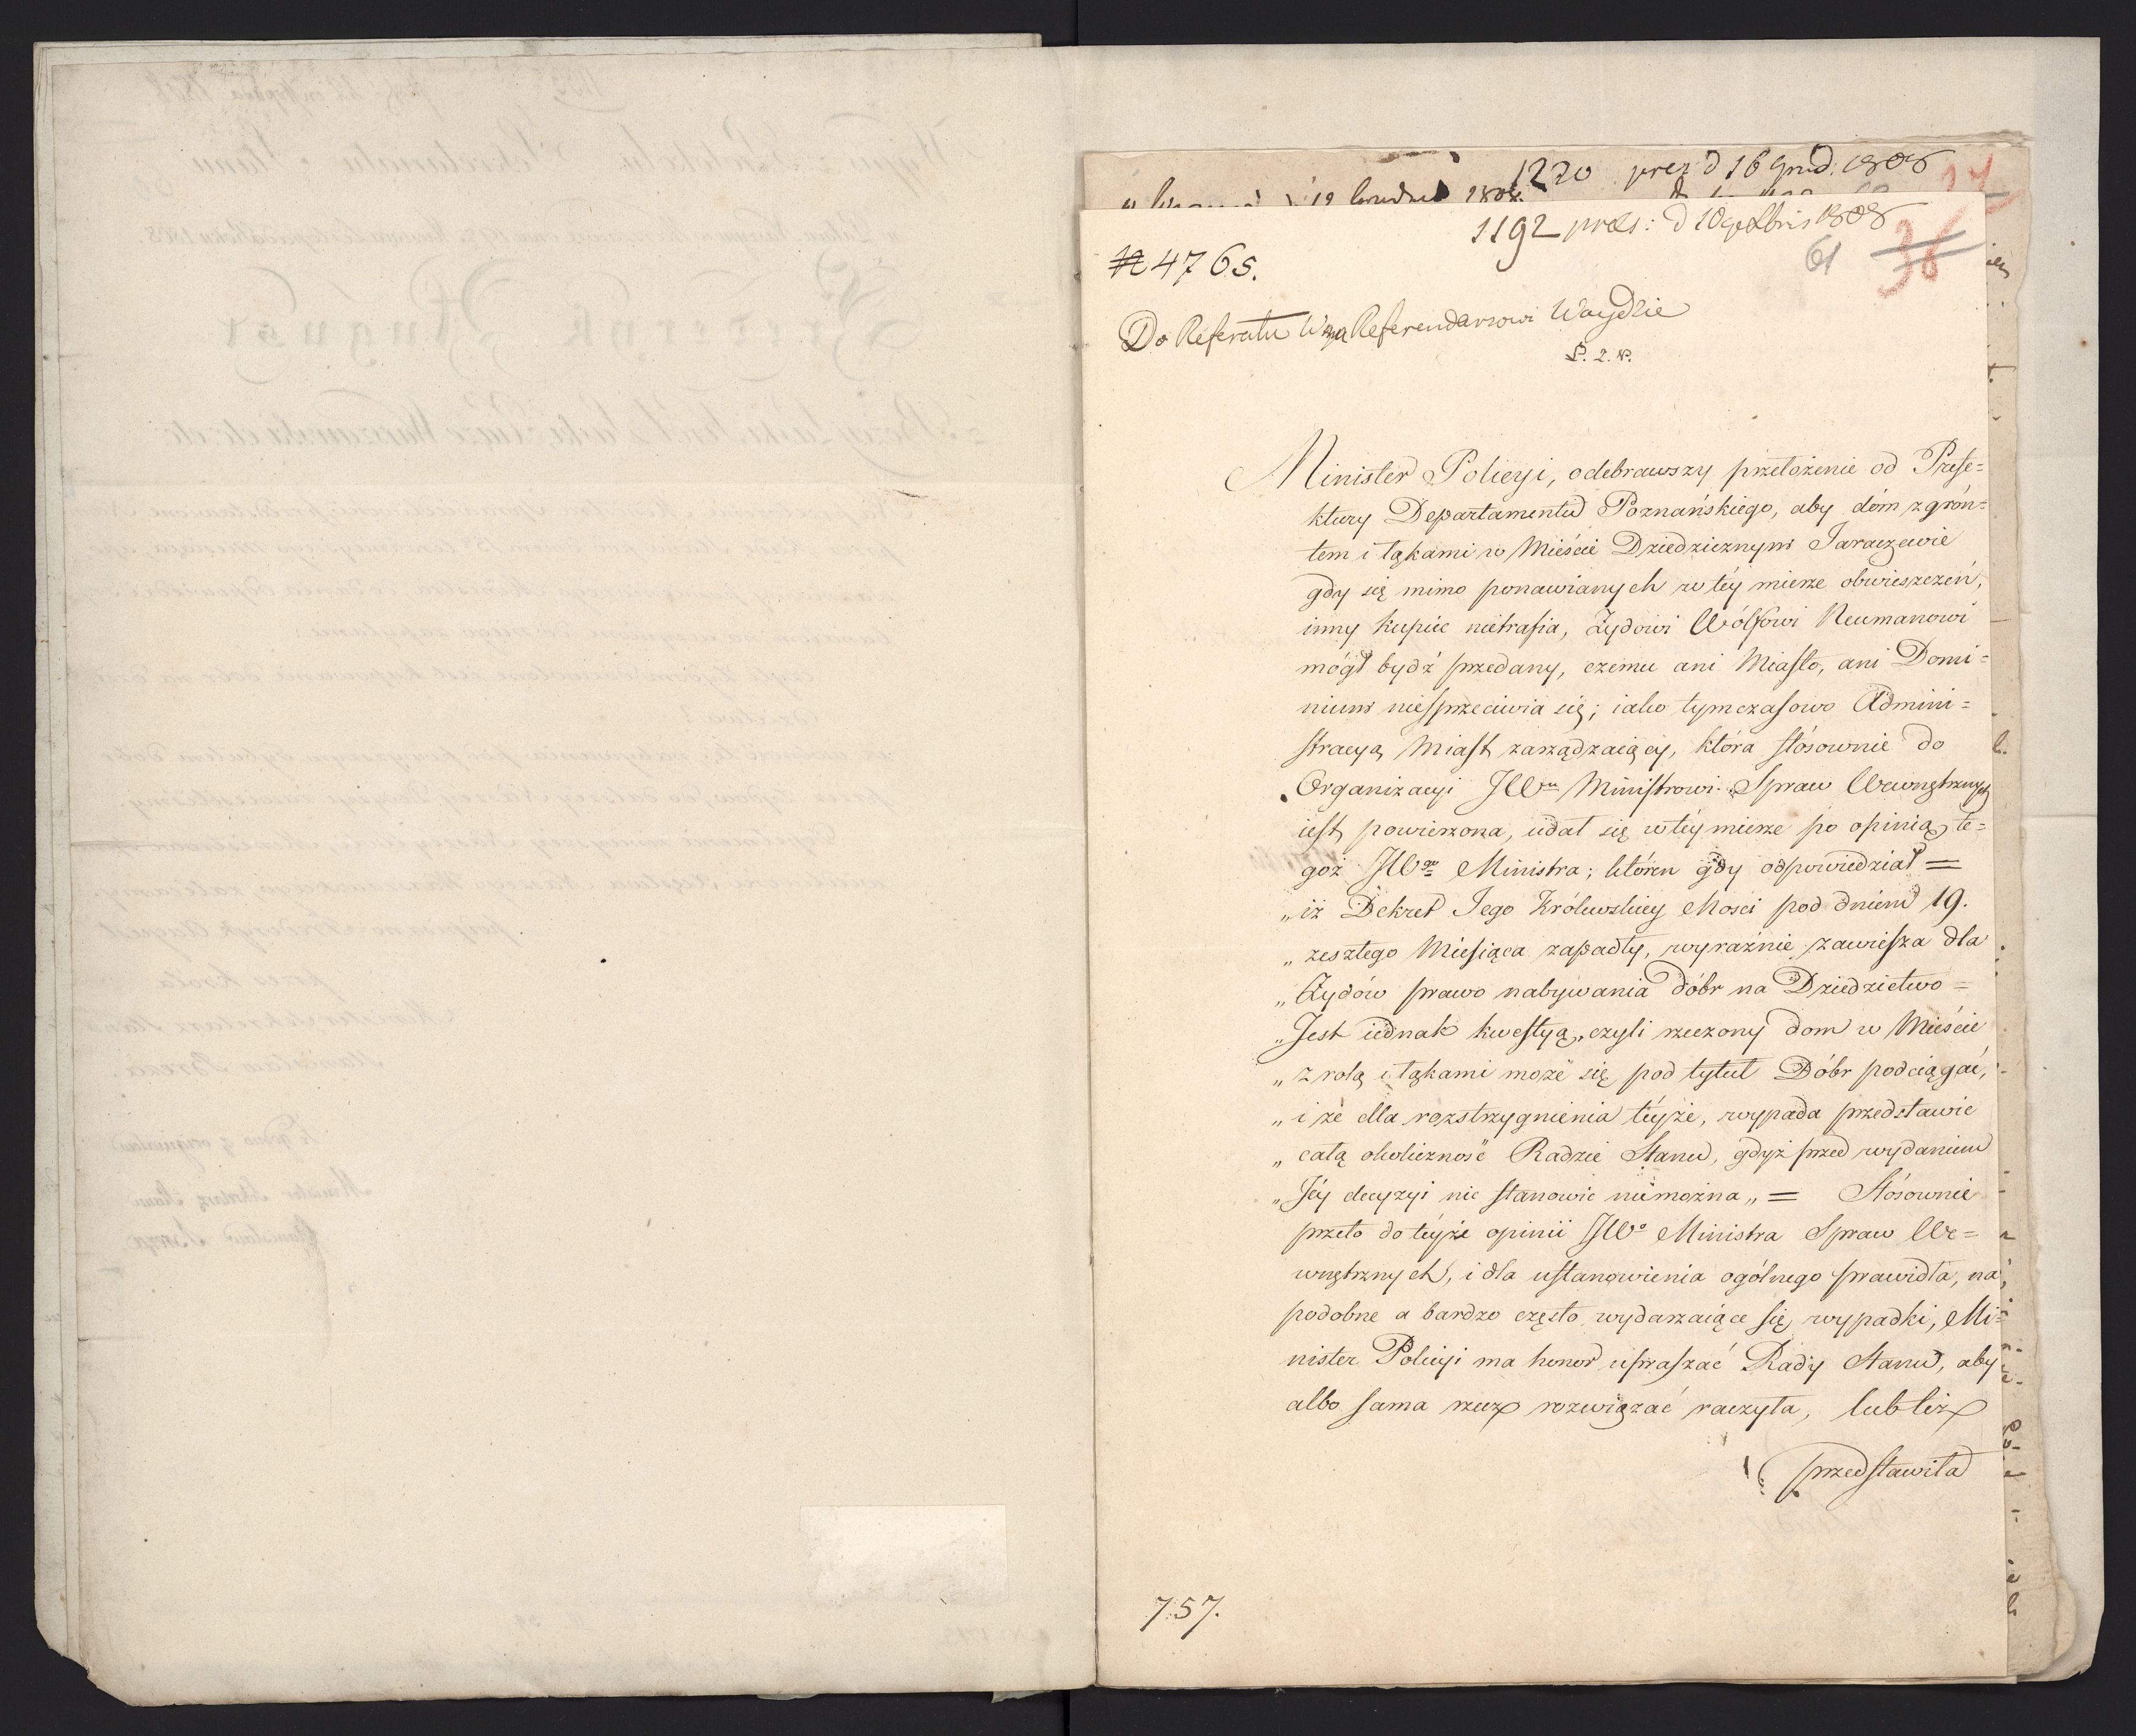 1220 prez d 16 Grud: 1808
12 Grudnia 1808.
1192 præs: d 10 Xbris 1808
61 36
N 4765.
Do Referatu Wmu Referendarzowi Woydzie
P. 2. W.
Minister Policyi, odebrawszy przełożenie od Prefe=
ktury Departamentu Poznańskiego, aby dóm z grón=
tem i łąkami w Mieście Dziedzicznym Jaraczewie
gdy się mimo ponawianych w téy mierze obwieszczeń,
inny kupiec nietrafia, Żydowi Wólfowi Neumanowi
mógł bydź przedany, czemu ani Miasto, ani Domi=
nium niesprzeciwia się; iako tymczasowo Admini=
stracyą Miast zarządzaiący, która stósownie do
Organizacyi JWmu Ministrowi Spraw Wewnętrznych
iest powierzona, udał się w téy mierze po opinią te=
goż JWgo Ministra; któren gdy odpowiedział =
„iż Dekret Jego Królewskiey Mości pod dniem 19.
„zeszłego Miesiąca zapadły, wyraźnie zawiesza dla
„Żydów prawo nabywania dóbr na Dziedzictwo =
„Jest iednak kwestyą, czyli rzeczony dom w Mieście
„z rolą i łąkami może się pod tytuł Dóbr podciągać,
„i że dla rozstrzygnienia téyże, wypada przedstawić
„całą okoliczność Radzie Stanu, gdyż przed wydaniem
„Jéy decyzyi nic stanowić niemożna„ = Stósownie
przeto do téyże opinii JWo Ministra Spraw We=
wnętrznych, i dla ustanowienia ogólnego prawidła, na
podobne a bardzo często wydarzaiące się wypadki, Mi=
nister Policyi ma honor upraszać Rady Stanu, aby
albo sama rzecz rozwiązać raczyła, lub też
przedstawiła
757.